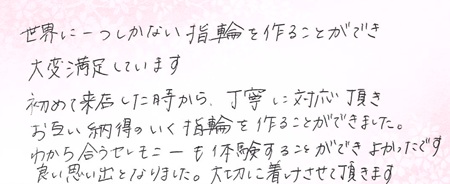 世界に一つしかない指輪を作ることができ
大変満足しています
初めて来店した時から、丁寧に対応頂き
お互い納得のいく指輪を作ることができました。
わかち合うセレモニーも体験することができよかったです
良い思い出となりました。大切に着けさせて頂きます